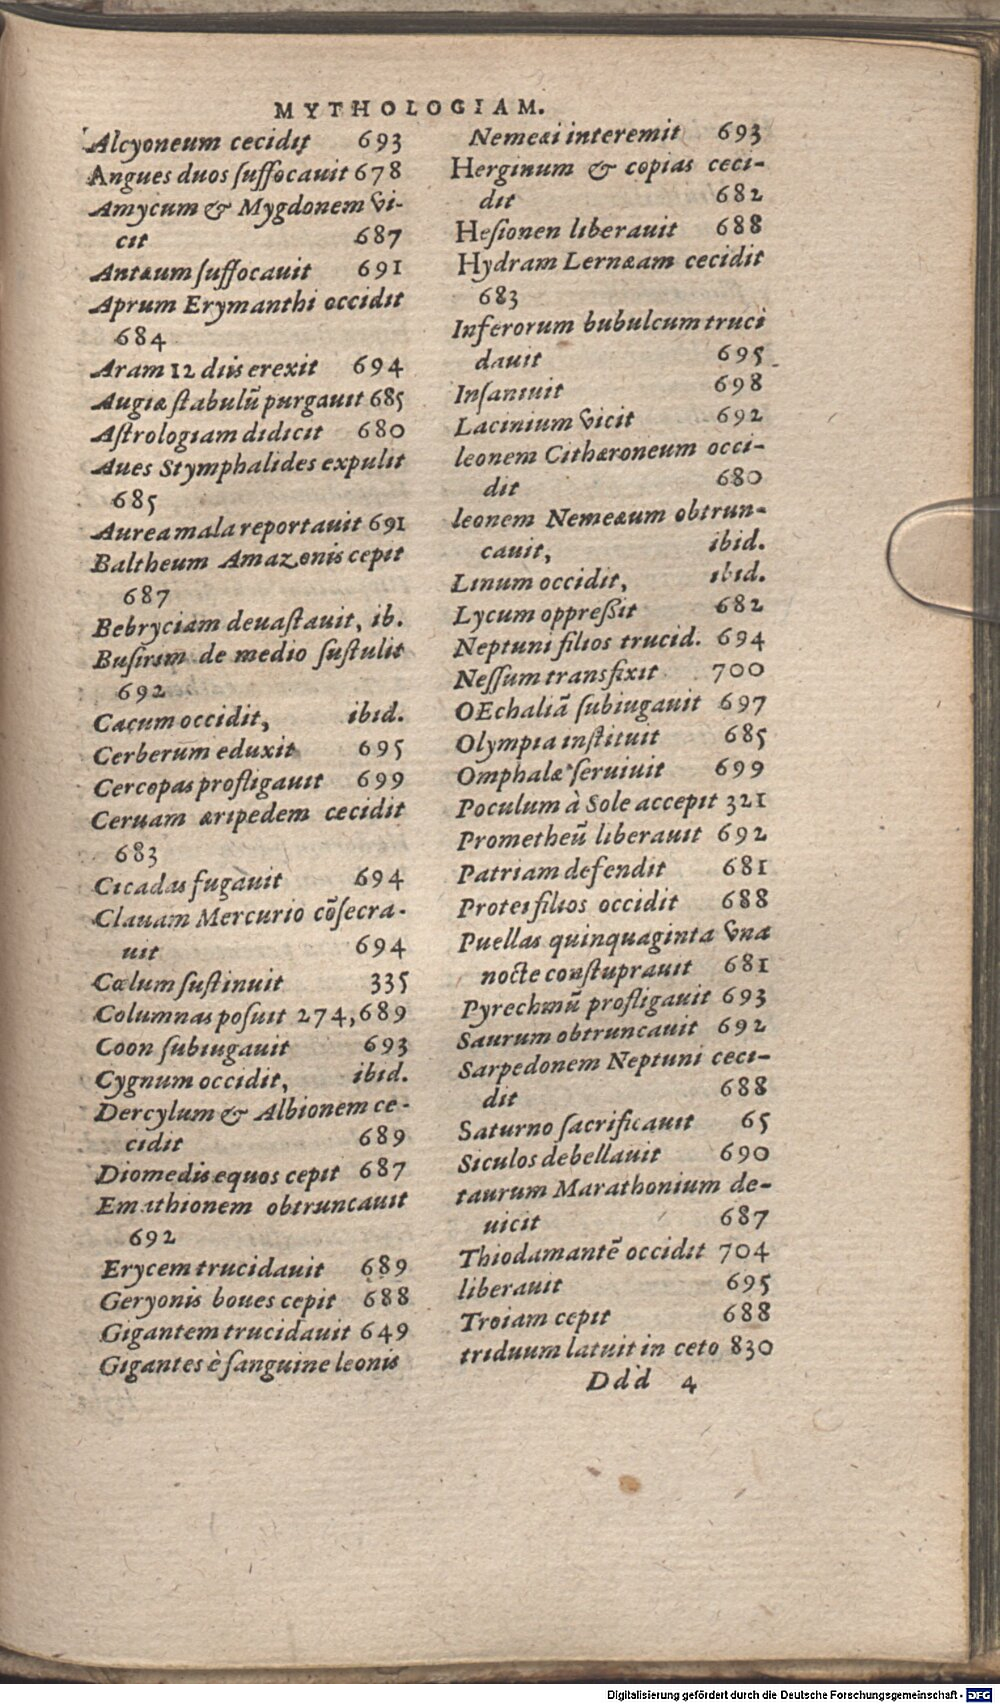 MYTHOLOGIAM.
Alcyoneum cecidit 693
Angues duos ſuffocauit 678
Amycum & Mygdonem vi-
cit 687
Antæum ſuffocauit 691
Aprum Erymanthi occidit
684
Aram 12 diis erexit 694
Augiæ ſtabulũ purgauit 685
Aſtrologiam didicit 680
Aues Stymphalides expulit
685
Aurea mala reportauit 691
Baltheum Amazonis cepit
687
Bebryciam deuaſtauit, ib.
Buſirim de medio ſuſtulit
692
Cacum occidit, ibid.
Cerberum eduxit 695
Cercopas profligauit 699
Ceruam æripedem cecidit
683
Cicadas fugauit 694
Clauam Mercurio cõſecra-
uit 694
Cœlum ſuſtinuit 335
Columnas poſuit 274,689
Coon ſubiugauit 693
Cygnum occidit, ibid.
Dercylum & Albionem ce-
cidit 689
Diomedis equos cepit 687
Emathionem obtruncauit
692
Erycem trucidauit 689
Geryonis boues cepit 688
Gigantem trucidauit 649
Gigantes è ſanguine leonis
Nemeæi interemit 693
Herginum & copias ceci-
dit 682
Heſionen liberauit 688
Hydram Lernæam cecidit
683
Inferorum bubulcum truci
dauit 695
Inſaniuit 698
Lacinium vicit 692
leonem Cithæroneum occi-
dit 680
leonem Nemeæum obtrun-
cauit, ibid.
Linum occidit, ibid.
Lycum oppreßit 682
Neptuni filios trucid. 694
Neſſum transfixit 700
OEchaliã ſubiugauit 697
Olympia inſtituit 685
Omphalæ ſeruiuit 699
Poculum à Sole accepit 321
Prometheũ liberauit 692
Patriam defendit 681
Protei filios occidit 688
Puellas quinquaginta vna
nocte conſtuprauit 681
Pyrechmũ profligauit 693
Saurum obtruncauit 692
Sarpedonem Neptuni ceci-
dit 688
Saturno ſacrificauit 65
Siculos debellauit 690
taurum Marathonium de-
uicit 687
Thiodamantẽ occidit 704
liberauit 695
Troiam cepit 688
triduum latuit in ceto 830
Ddd 4
Digitalisierung gefördert durch die Deutsche Forschungsgemeinschaft - DFG